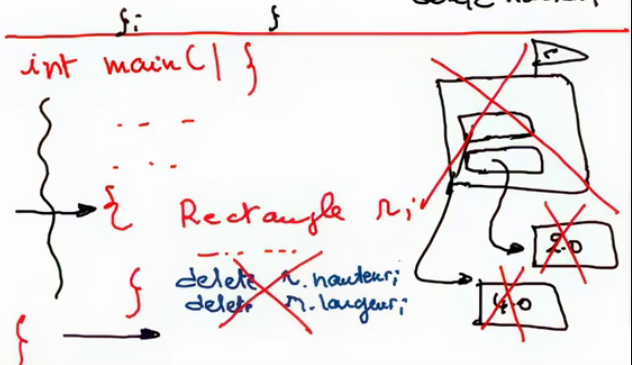 }; }
int main() {
... 
...
{ Rectangle r;
......
delete r.hauteur;
} delete r.largeur;
}
r
2.0
4.0